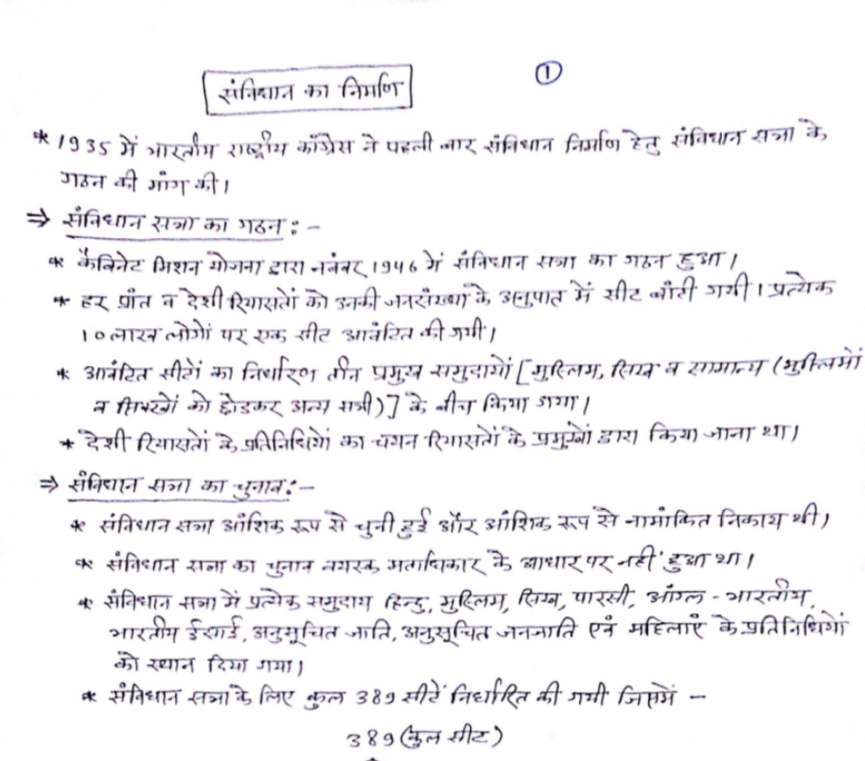 ①
संविधान का निर्माण
* 1935 में भारतीय राष्ट्रीय काँग्रेस ने पहली बार संविधान निर्माण हेतु संविधान सभा के
गठन की मांग की।
⇒ संविधान सभा का गठन :-
* कैबिनेट मिशन योजना द्वारा नवंबर, 1946 में संविधान सभा का गठन हुआ।
* हर प्राँत व देशी रियासतों को उनकी जनसंख्या के अनुपात में सीट बाँटी गयी। प्रत्येक
10 लाख लोगों पर एक सीट आवंटित की गयी।
* आवंटित सीटों का निर्धारण तीन प्रमुख समुदायों [मुस्लिम, सिख व सामान्य (मुस्लिमों
व सिक्खों को छोडकर अन्य सभी)] के बीच किया गया।
* देशी रियासतों के प्रतिनिधियों का चयन रियासतों के प्रमुखों द्वारा किया जाना था।
⇒ संविधान सभा का चुनाव :-
* संविधान सभा आंशिक रूप से चुनी हुई और आंशिक रूप से नामांकित निकाय थी।
* संविधान सभा का चुनाव वयस्क मताधिकार के आधार पर नहीं हुआ था।
* संविधान सभा में प्रत्येक समुदाय हिन्दु, मुस्लिम, सिख, पारसी, आंग्ल - भारतीय,
भारतीय ईसाई, अनुसूचित जाति, अनुसूचित जनजाति एवं महिलाएं के प्रतिनिधियों
को स्थान दिया गया।
* संविधान सभा के लिए कुल 389 सीटें निर्धारित की गयी जिसमें -
389 (कुल सीट)